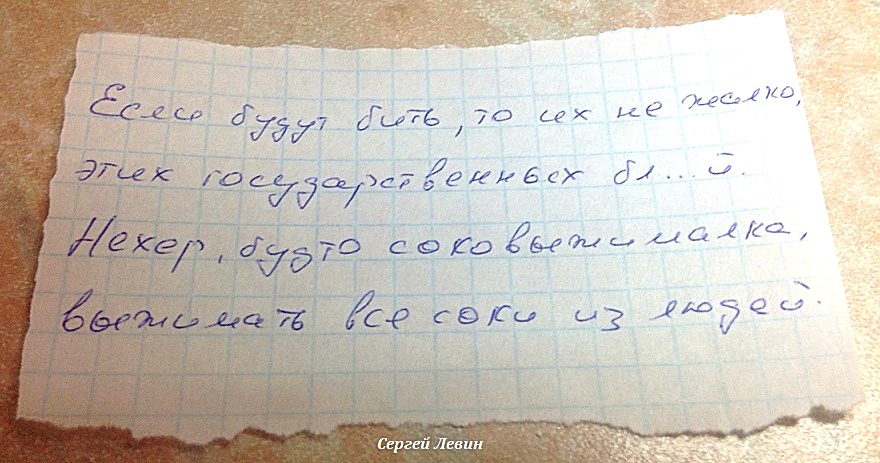 Если будут бить, то их не жалко,
этих государственных бл...й.
Нехер, будто соковыжималка,
выжимать все соки из людей.
Сергей Левин